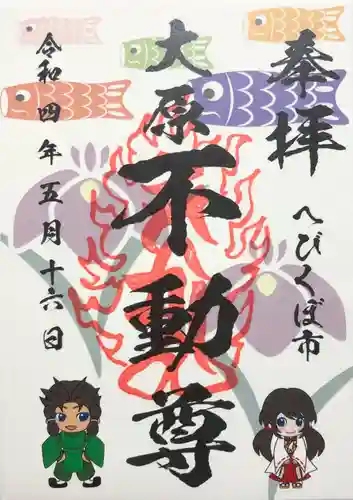 奉拝
へびくぼ市
大原
不動尊
令和四年五月十六日